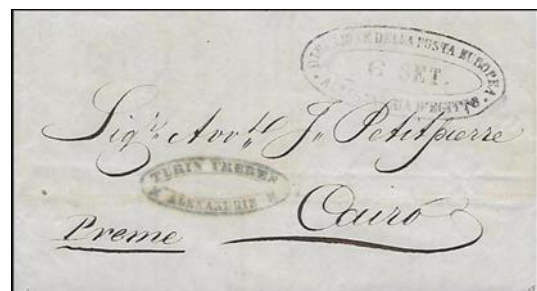 DIREZIONE DELLA POSTA EUROPEA
6 SET.
D'EGITTO
J. Petitpierre
TURIN FRERES
ALEXANDRIE
Cairo
Preme